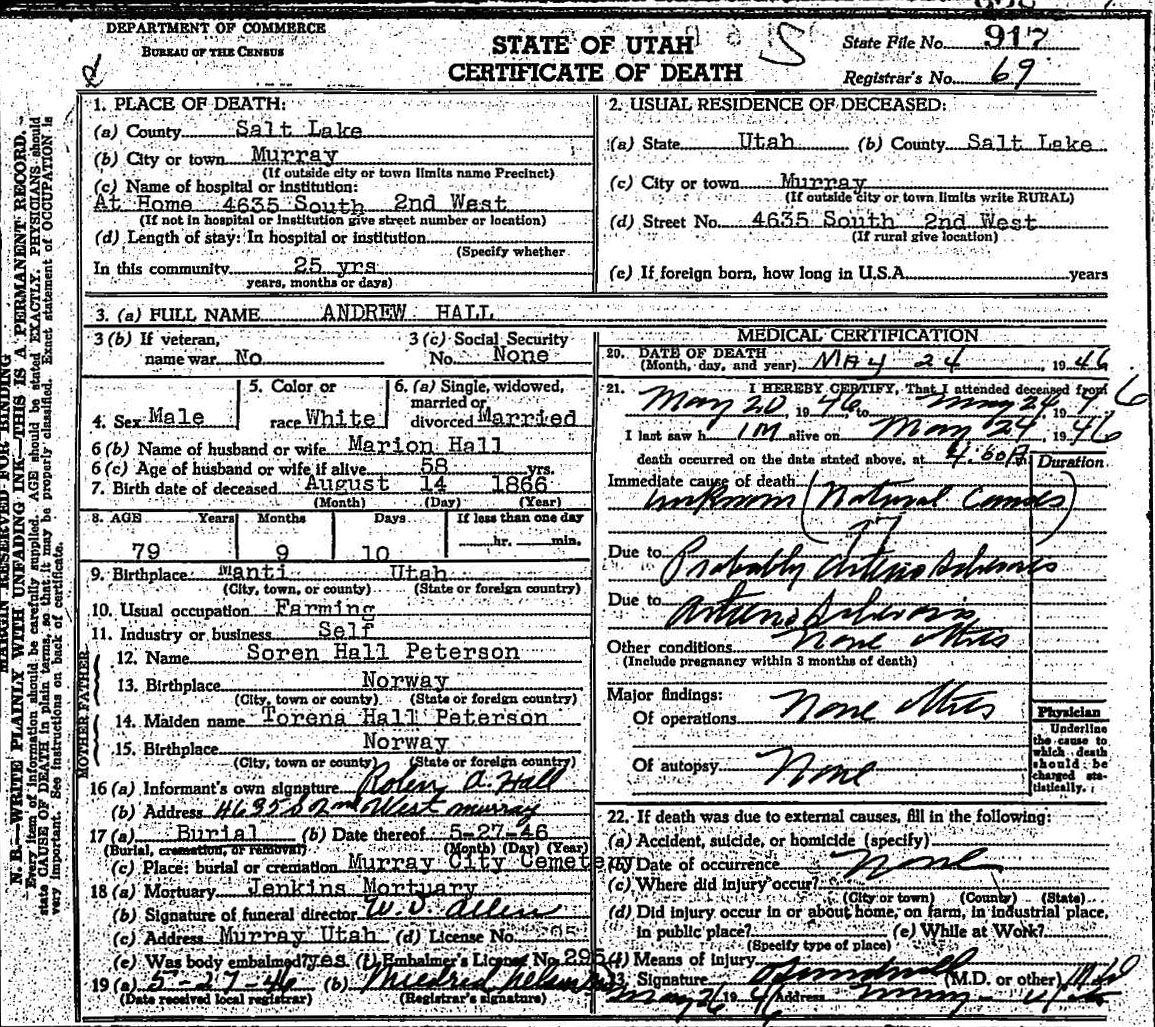 DEPARTMENT OF COMMERCE
BUREAU OF THE CENSUS
STATE OF UTAH
CERTIFICATE OF DEATH
State File No. 917
Registrar's No. 69
MARGIN RESERVED FOR BINDING
N. B.—WRITE PLAINLY WITH UNFADING INK—THIS IS A PERMANENT RECORD.
Every item of information should be carefully supplied. AGE should be stated EXACTLY. PHYSICIANS should
state CAUSE OF DEATH in plain terms, so that it may be properly classified. Exact statement of OCCUPATION is
very important. See instructions on back of certificate.
1. PLACE OF DEATH:
(a) County Salt Lake
(b) City or town Murray
(If outside city or town limits name Precinct)
(c) Name of hospital or institution:
At Home 4635 South 2nd West
(If not in hospital or institution give street number or location)
(d) Length of stay: In hospital or institution
(Specify whether
In this community 25 yrs
years, months or days)
2. USUAL RESIDENCE OF DECEASED:
(a) State Utah (b) County Salt Lake
(c) City or town Murray
(If outside city or town limits write RURAL)
(d) Street No. 4635 South 2nd West
(If rural give location)
(e) If foreign born, how long in U.S.A. years
3. (a) FULL NAME ANDREW HALL
3 (b) If veteran,
name war No
3 (c) Social Security
No. None
4. Sex Male
5. Color or
race White
6. (a) Single, widowed,
married or
divorced Married
6 (b) Name of husband or wife Marion Hall
6 (c) Age of husband or wife if alive 58 yrs.
7. Birth date of deceased August 14 1866
(Month) (Day) (Year)
8. AGE Years Months Days If less than one day
79 9 10 hr. min.
9. Birthplace Manti Utah
(City, town, or county) (State or foreign country)
10. Usual occupation Farming
11. Industry or business Self
FATHER
12. Name Soren Hall Peterson
13. Birthplace Norway
(City, town or county) (State or foreign country)
MOTHER
14. Maiden name Torena Hall Peterson
15. Birthplace Norway
(City, town or county) (State or foreign country)
16 (a) Informant's own signature A. Hall
(b) Address 4635 So 2nd West Murray
17 (a) Burial (b) Date thereof 5-27-46
(Burial, cremation, or removal) (Month) (Day) (Year)
(c) Place: burial or cremation Murray City Cemetery
18 (a) Mortuary Jenkins Mortuary
(b) Signature of funeral director W. D. Allen
(c) Address Murray Utah (d) License No.
(e) Was body embalmed? yes (f) Embalmer's License No. 295
19 (a) 5-27-46 (b) Mildred
(Date received local registrar) (Registrar's signature)
MEDICAL CERTIFICATION
20. DATE OF DEATH
(Month, day, and year) May 24, 1946
21. I HEREBY CERTIFY, That I attended deceased from
May 20, 1946 to May 24, 1946
I last saw him alive on May 24, 1946
death occurred on the date stated above, at
Duration
Immediate cause of death
unknown (Natural Causes)
Due to Probably Arterio Sclerosis
Due to Arterio Sclerosis
Other conditions None
(Include pregnancy within 3 months of death)
Major findings:
Of operations None
Of autopsy None
Physician
Underline
the cause to
which death
should be
charged sta-
tistically.
22. If death was due to external causes, fill in the following:
(a) Accident, suicide, or homicide (specify)
(b) Date of occurrence None
(c) Where did injury occur?
(City or town) (County) (State)
(d) Did injury occur in or about home, on farm, in industrial place,
in public place? (e) While at Work?
(Specify type of place)
(f) Means of injury
23. Signature (M.D. or other) Md
May 26 1946 Address Murray Utah